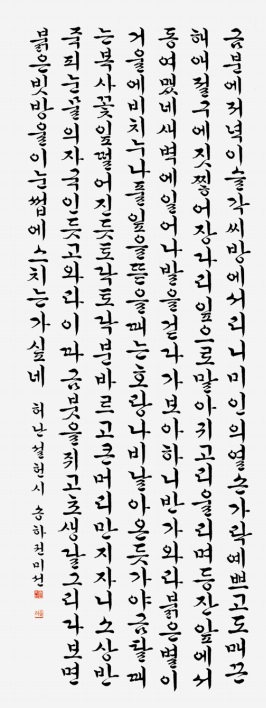 금분에저녁이슬각씨방에서리니미인의열손가락예쁘고도매끈
해대절구에짓찧어장다리잎으로말아귀고리울리며등잔앞에서
동여맸네새벽에일어나발을걷다가보아하니반가와라붉은별이
거울에비치누나풀잎을뜯을때는호랑나비날아온듯가야금탈때
는복사꽃잎떨어진듯토닥토닥분바르고큰머리만지자니소상반
죽피눈물의자국인듯고와라이따금붓을쥐고초생달그리다보면
붉은빗방울이눈썹에스치는가싶네 허난설헌시 송하전미선